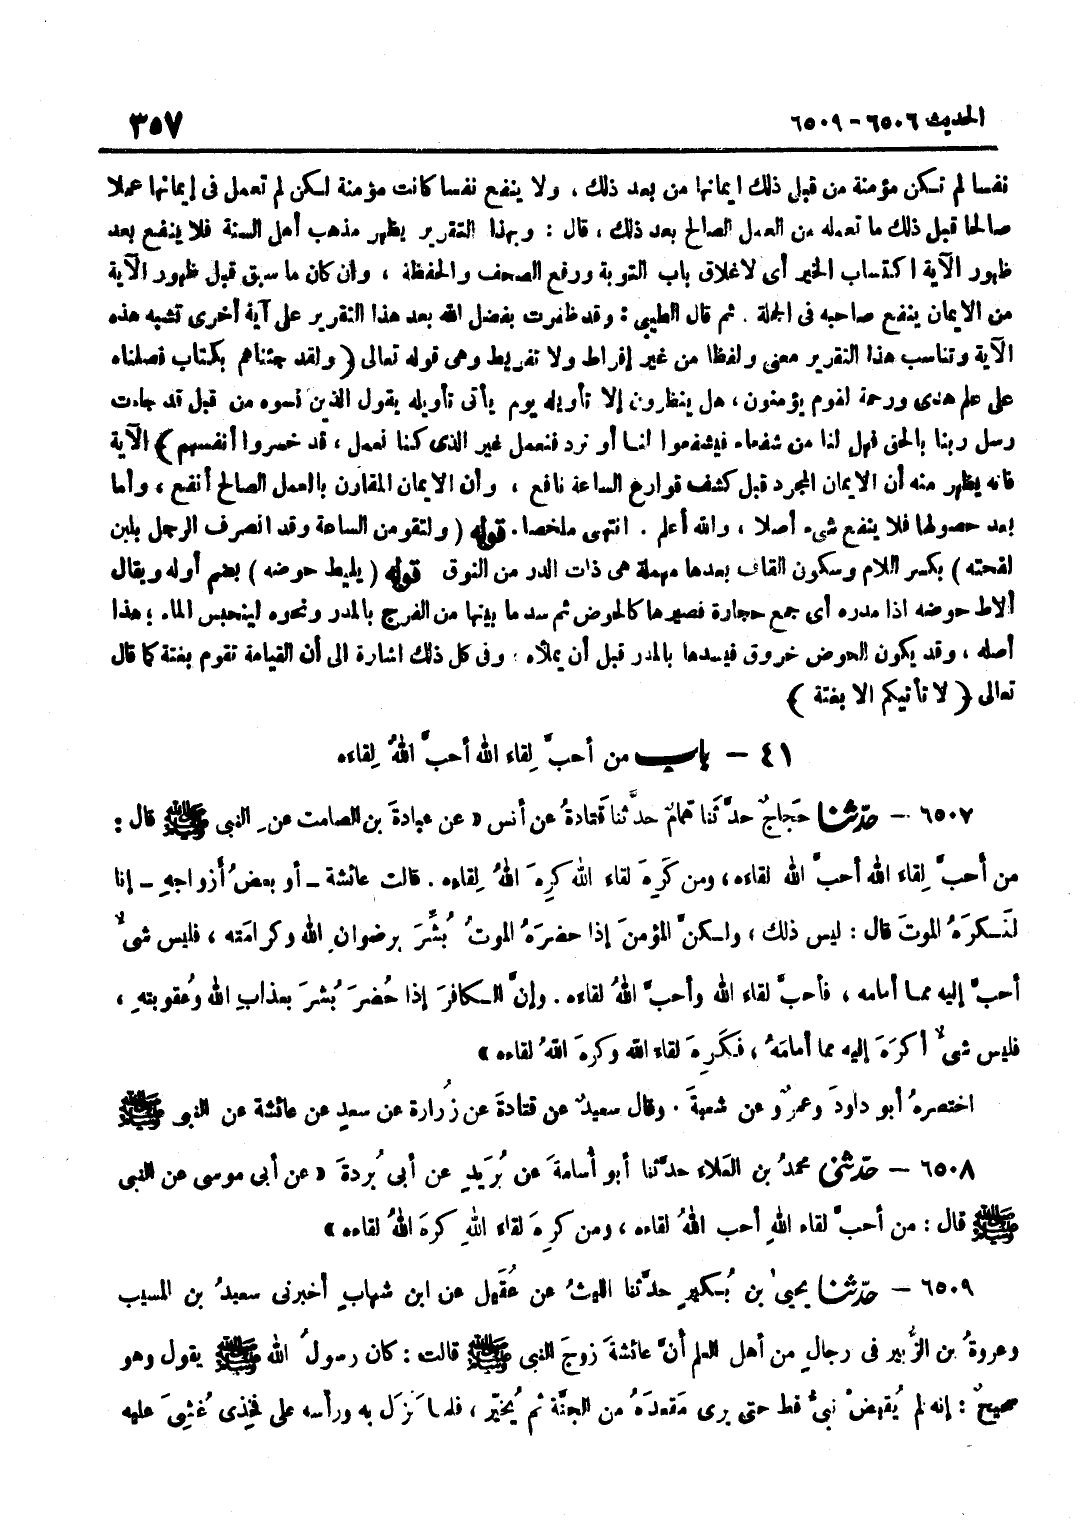 الحديث ٦٥٠٦ - ٦٥٠٩ ٣٥٧
نفسا لم تكن مؤمنة من قبل ذلك ايمانها من بعد ذلك ، ولا ينفع نفسا كانت مؤمنة لكن لم تعمل فى إيمانها عملا
صالحا قبل ذلك ما تعمله من العمل الصالح بعد ذلك ، قال : وبهذا التقرير يظهر مذهب أهل السنة فلا ينفع بعد
ظهور الآية اكتساب الخير أى لاغلاق باب التوبة ورفع الصحف والحفظة ، وان كان ما سبق قبل ظهور الآية
من الايمان ينفع صاحبه فى الجملة . ثم قال الطيبى : وقد ظفرت بفضل الله بعد هذا التقرير على آية أخرى تشبه هذه
الآية وتناسب هذا التقرير معنى ولفظا من غير إفراط ولا تفريط وهى قوله تعالى ﴿ ولقد جئناهم بكتاب فصلناه
على علم هدى ورحمة لقوم يؤمنون ، هل ينظرون إلا تأويله يوم يأتى تأويله يقول الذين نسوه من قبل قد جاءت
رسل ربنا بالحق فهل لنا من شفعاء فيشفعوا لنا أو نرد فنعمل غير الذى كنا نعمل ، قد خسروا أنفسهم ﴾ الآية
فانه يظهر منه أن الايمان المجرد قبل كشف قوارع الساعة نافع ، وأن الايمان المقارن بالعمل الصالح أنفع ، وأما
بعد حصولها فلا ينفع شىء أصلا ، والله أعلم . انتهى ملخصا . قوله ( ولتقومن الساعة وقد انصرف الرجل بلبن
لقحته ) بكسر اللام وسكون القاف بعدها مهملة هى ذات الدر من النوق قوله ( يليط حوضه ) بضم أوله ويقال
ألاط حوضه اذا مدره أى جمع حجارة فصيرها كالحوض ثم سد ما بينها من الفرج بالمدر ونحوه لينحبس الماء ؛ هذا
أصله ، وقد يكون للحوض خروق فيسدها بالمدر قبل أن يملأه ؛ وفى كل ذلك اشارة الى أن القيامة تقوم بغتة كما قال
تعالى ﴿ لا تأتيكم الا بغتة ﴾
٤١ - باب من أحبَّ لِقاء الله أحبَّ اللهُ لِقاءه
٦٥٠٧ - حدّثنا حَجاجٌ حدَّثَنا هَمامٌ حدَّثنا قَتادةُ عن أنس « عن عبادةَ بن الصامت عنِ النبى ﷺ قال :
من أحبَّ لِقاء الله أحبَّ الله لقاءه ، ومن كَرِهَ لقاء الله كرِهَ اللهُ لِقاءه . قالت عائشة - أو بعضُ أزواجهِ - إنا
لَنَكرَهُ الموتَ قال : ليس ذلك ، ولكنَّ المؤمنَ إذا حضرَهُ الموتُ بُشِّرَ برِضوانِ الله وكرامَته ، فليس شىءٌ
أحبَّ إليه مما أمامه ، فأحبَّ لقاء الله وأحبَّ اللهُ لقاءه . وإنَّ الكافرَ إذا حُضرَ بُشرَ بعذابِ الله وعُقوبتهِ ،
فليس شىءٌ أكرَهَ إليه مما أمامَهُ ، فكَرِهَ لقاء الله وكرِهَ اللهُ لقاءه »
اختصرهُ أبو داودَ وعمرٌو عن شعبةَ . وقال سعيدٌ عن قتادةَ عن زُرارة عن سعدٍ عن عائشة عن النبى ﷺ
٦٥٠٨ - حدّثنى محمدُ بن العَلاء حدَّثنا أبو أُسامةَ عن بُرَيدٍ عن أبى بُردةَ « عن أبى موسى عن النبى
ﷺ قال : من أحبَّ لقاء اللهِ أحب اللهُ لقاءه ، ومن كرِهَ لقاء اللهِ كرهَ اللهُ لقاءه »
٦٥٠٩ - حدّثنا يحيىٰ بن بُكيرٍ حدَّثنا الليثُ عن عُقَيل عن ابن شهابٍ أخبرنى سعيدُ بن المسيب
وعروةُ بن الزُّبير فى رجالٍ من أهل العلم أنَّ عائشةَ زوجَ النبى ﷺ قالت : كان رسولُ الله ﷺ يقول وهو
صحيحٌ : إنه لم يُقبضْ نبىٌّ قط حتى يرى مَقعدَهُ من الجنَّة ثم يُخيَّر ، فلما نزَل به ورأسه على فخِذى غُشِىَ عليه